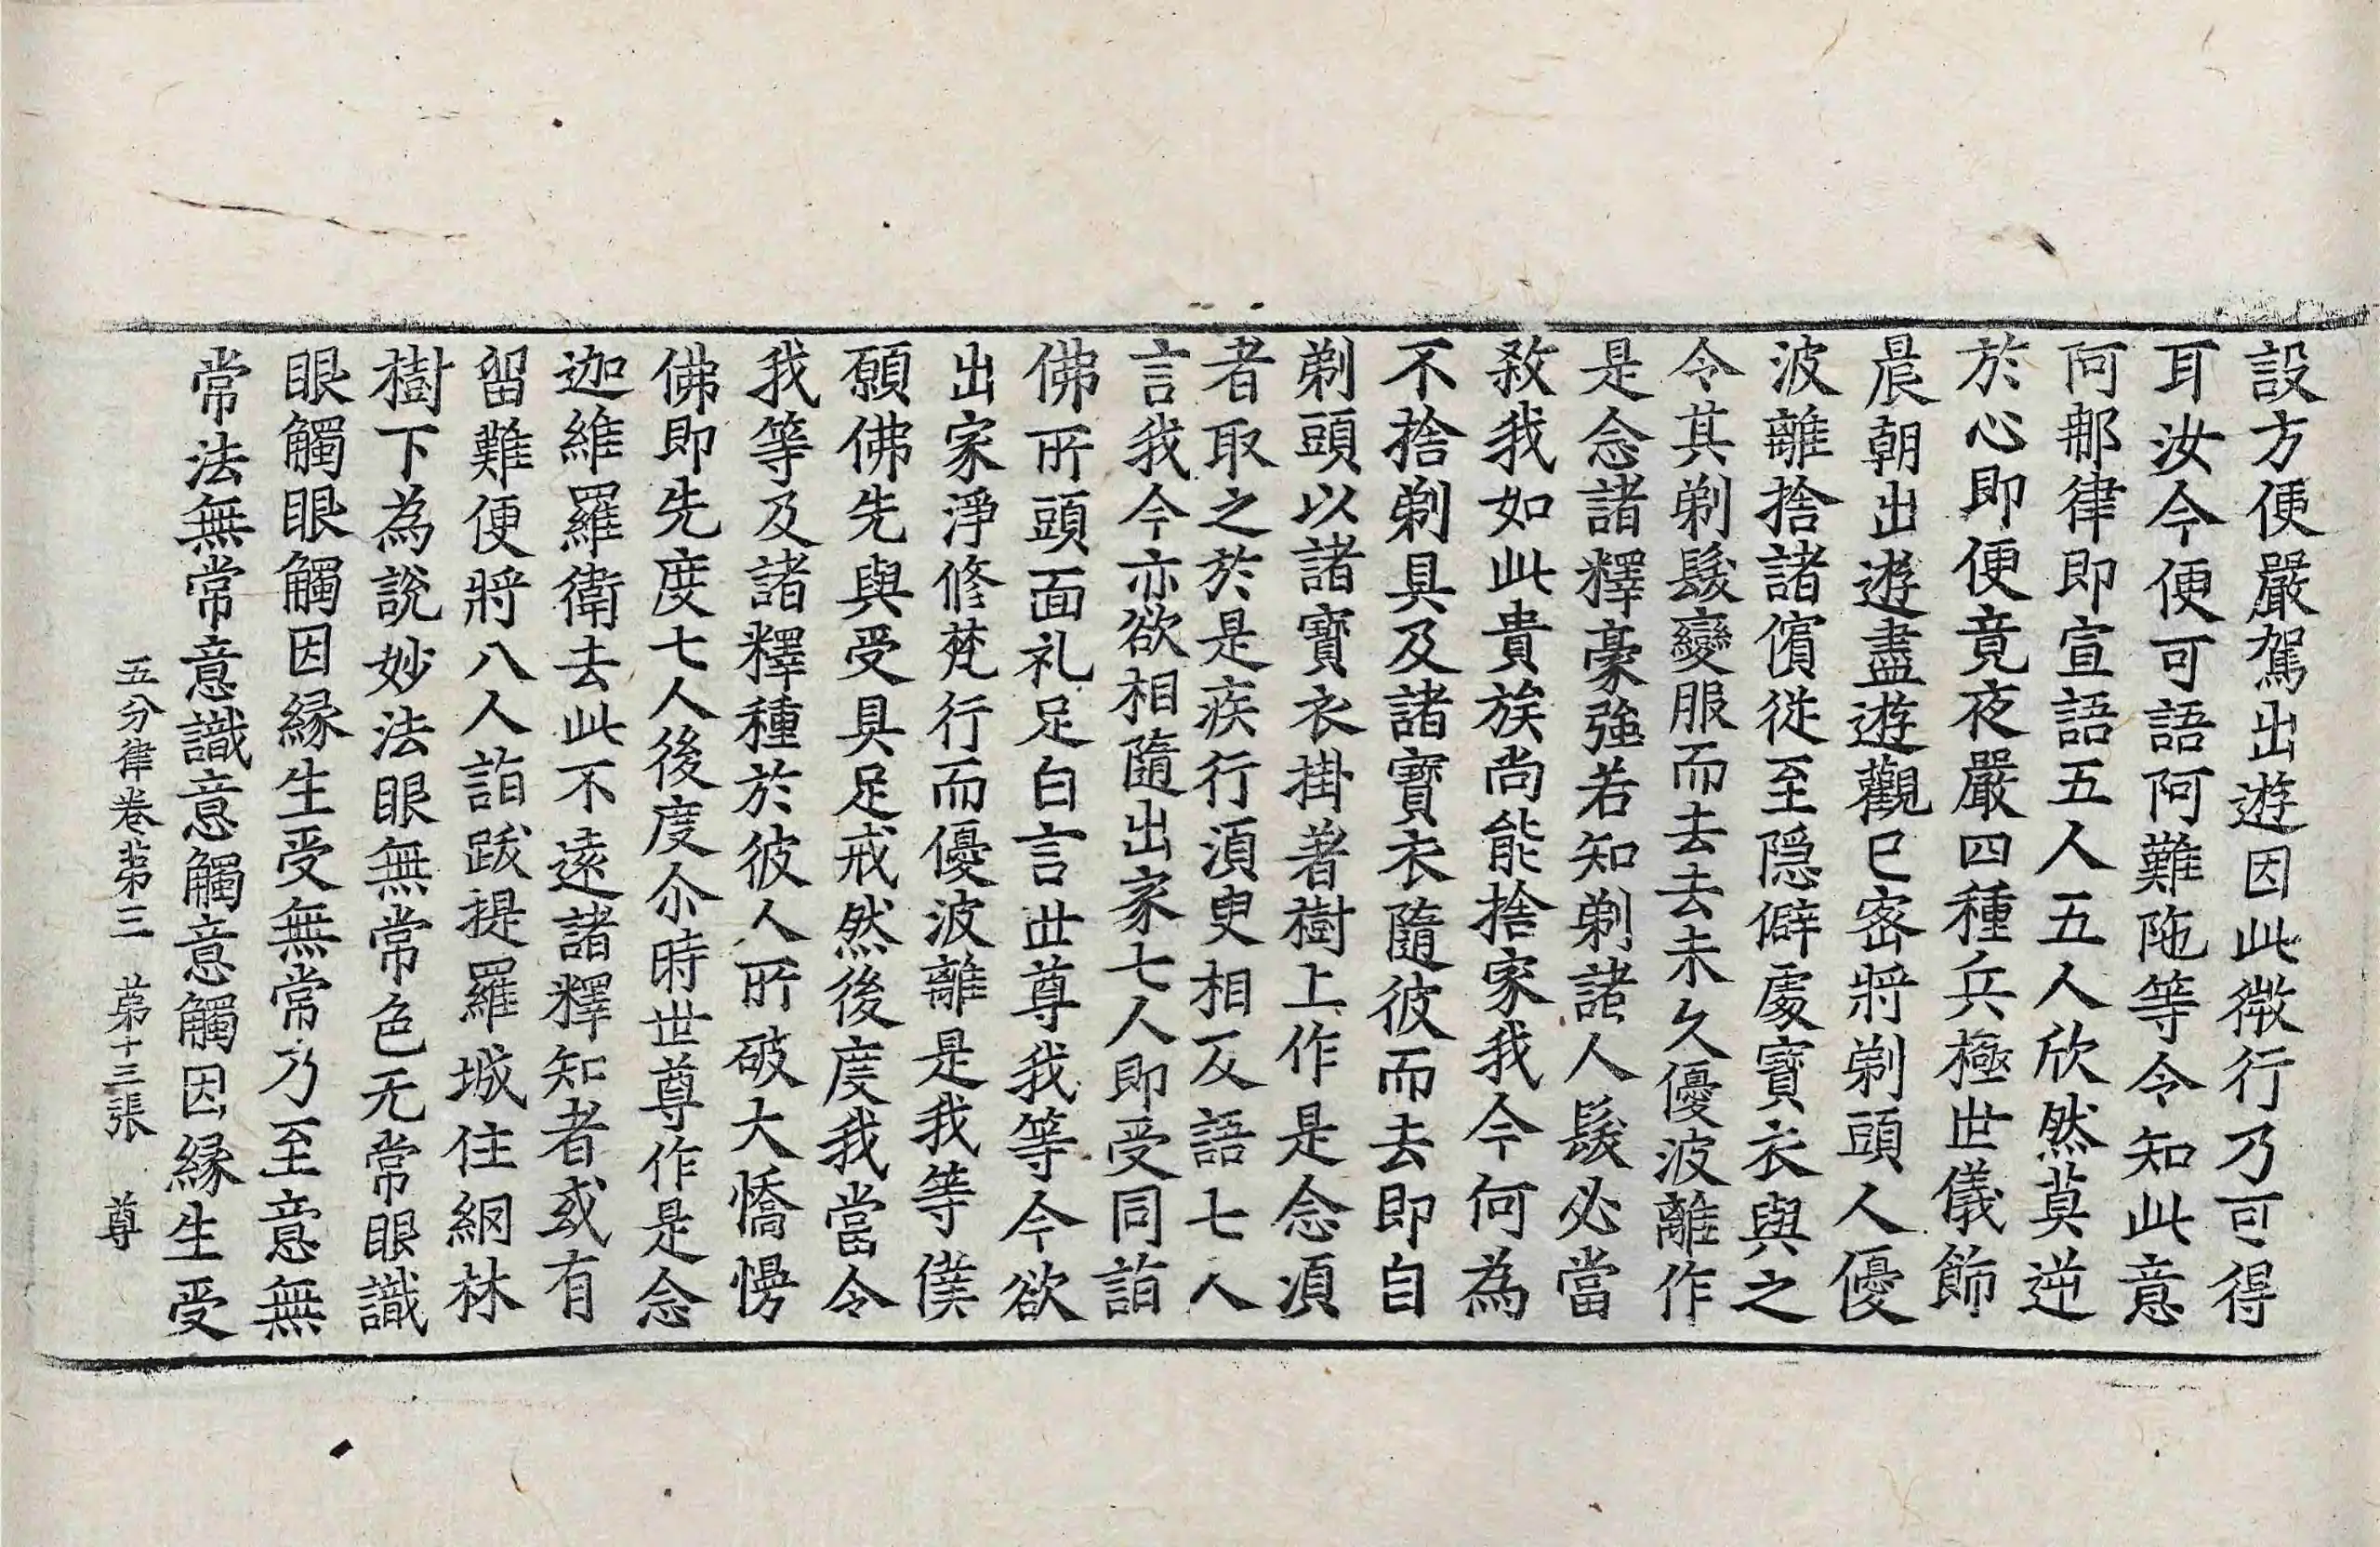 設方便嚴駕出遊因此微行乃可得
耳汝今便可語阿難陁等令知此意
阿那律即宣語五人五人欣然莫逆
於心即便竟夜嚴四種兵極世儀飾
晨朝出遊盡遊觀已密將剃頭人優
波離捨諸儐從至隱僻處寶衣與之
令其剃髮變服而去去未久優波離作
是念諸釋豪強若知剃諸人髮必當
殺我如此貴族尚能捨家我今何為
不捨剃具及諸寶衣隨彼而去即自
剃頭以諸寶衣掛著樹上作是念湏
者取之於是疾行湏臾相及語七人
言我今亦欲相隨出家七人即受同詣
佛所頭面礼足白言世尊我等今欲
出家淨修梵行而優波離是我等僕
願佛先與受具足戒然後度我當令
我等及諸釋種於彼人所破大憍慢
佛即先度七人後度尒時世尊作是念
迦維羅衛去此不遠諸釋知者或有
留難便將八人詣跋提羅城住網林
樹下為說妙法眼無常色无常眼識
眼觸眼觸因緣生受無常乃至意無
常法無常意識意觸意觸因緣生受
五分律卷第三 第十三張 尊